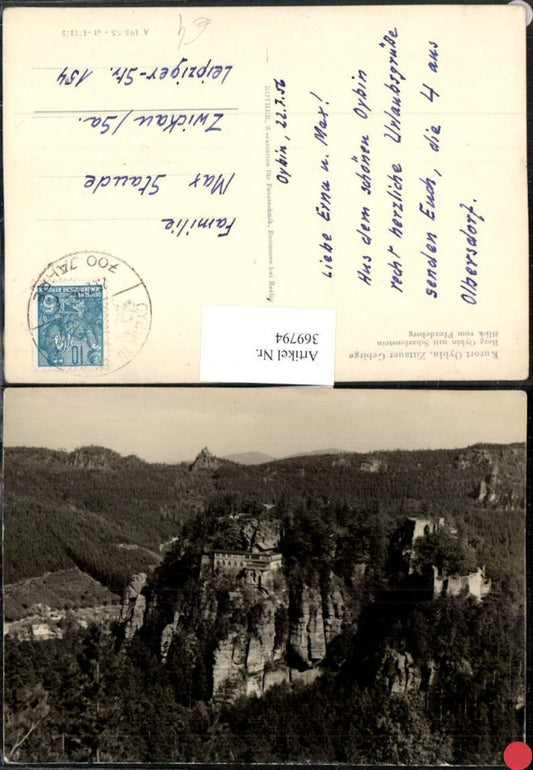 Kurort Oybin, Zittauer Gebirge
Berg Oybin mit Scharfenstein
Blick vom Pferdeberg
Oybin, 22.7.56
Liebe Erna u. Max!
Aus dem schönen Oybin
recht herzliche Urlaubsgrüße
senden Euch, die 4 aus
Olbersdorf.
ROTHER, Werkstätten für Fototechnik, Bestensee bei Berlin
700 JAHRE
10
Familie
Max Staude
Zwickau/Sa.
Leipziger-Str. 154
€ 4
Artikel Nr.
369794